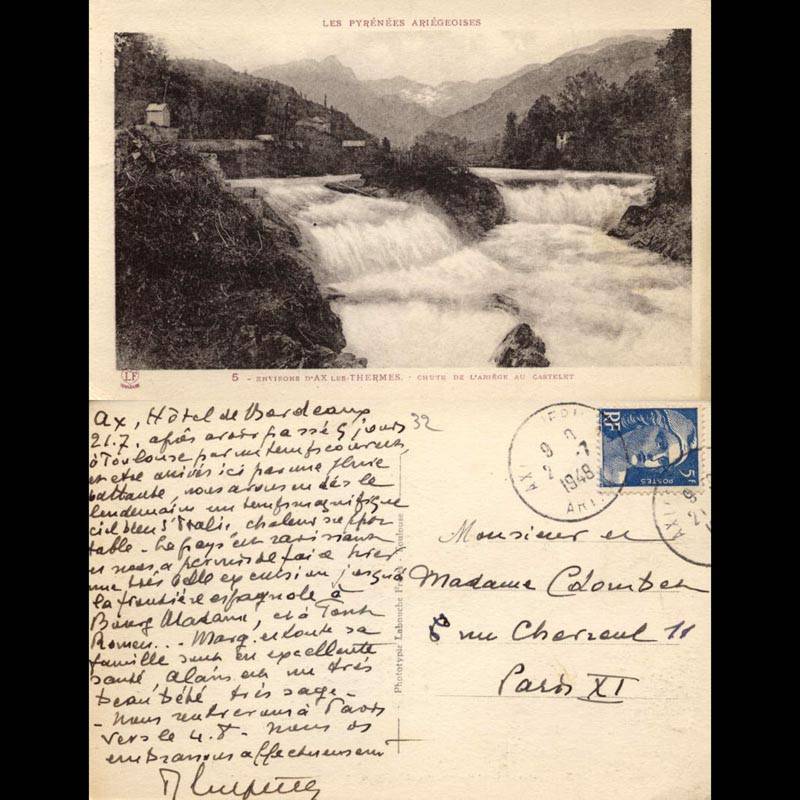 LES PYRÉNÉES ARIÉGEOISES
LF
5 - ENVIRONS D'AX-LES-THERMES. - CHUTE DE L'ARIÈGE AU CASTELET
Ax, Hôtel de Bordeaux
21.7. après avoir passé 5 jours
à Toulouse par un temps couvert,
et être arrivés ici par une pluie
battante, nous avons eu dès le
lendemain un temps magnifique
ciel bleu d'Italie, chaleur suppor
table - Le pays est ravissant
et nous a permis de faire hier
une très belle excursion jusqu'à
la frontière espagnole à
Bourg Madame, et à Font
Romeu... Marg. et toute sa
famille sont en excellente
santé, Alain est un très
beau bébé très sage -
- Nous rentrerons à Paris
vers le 4.8 - Nous vous
embrassons affectueusement
32
Phototypie Labouche Toulouse
1948
RF
5F
POSTES
Monsieur et
Madame Colomben
8 rue Cherreul 11
Paris XI